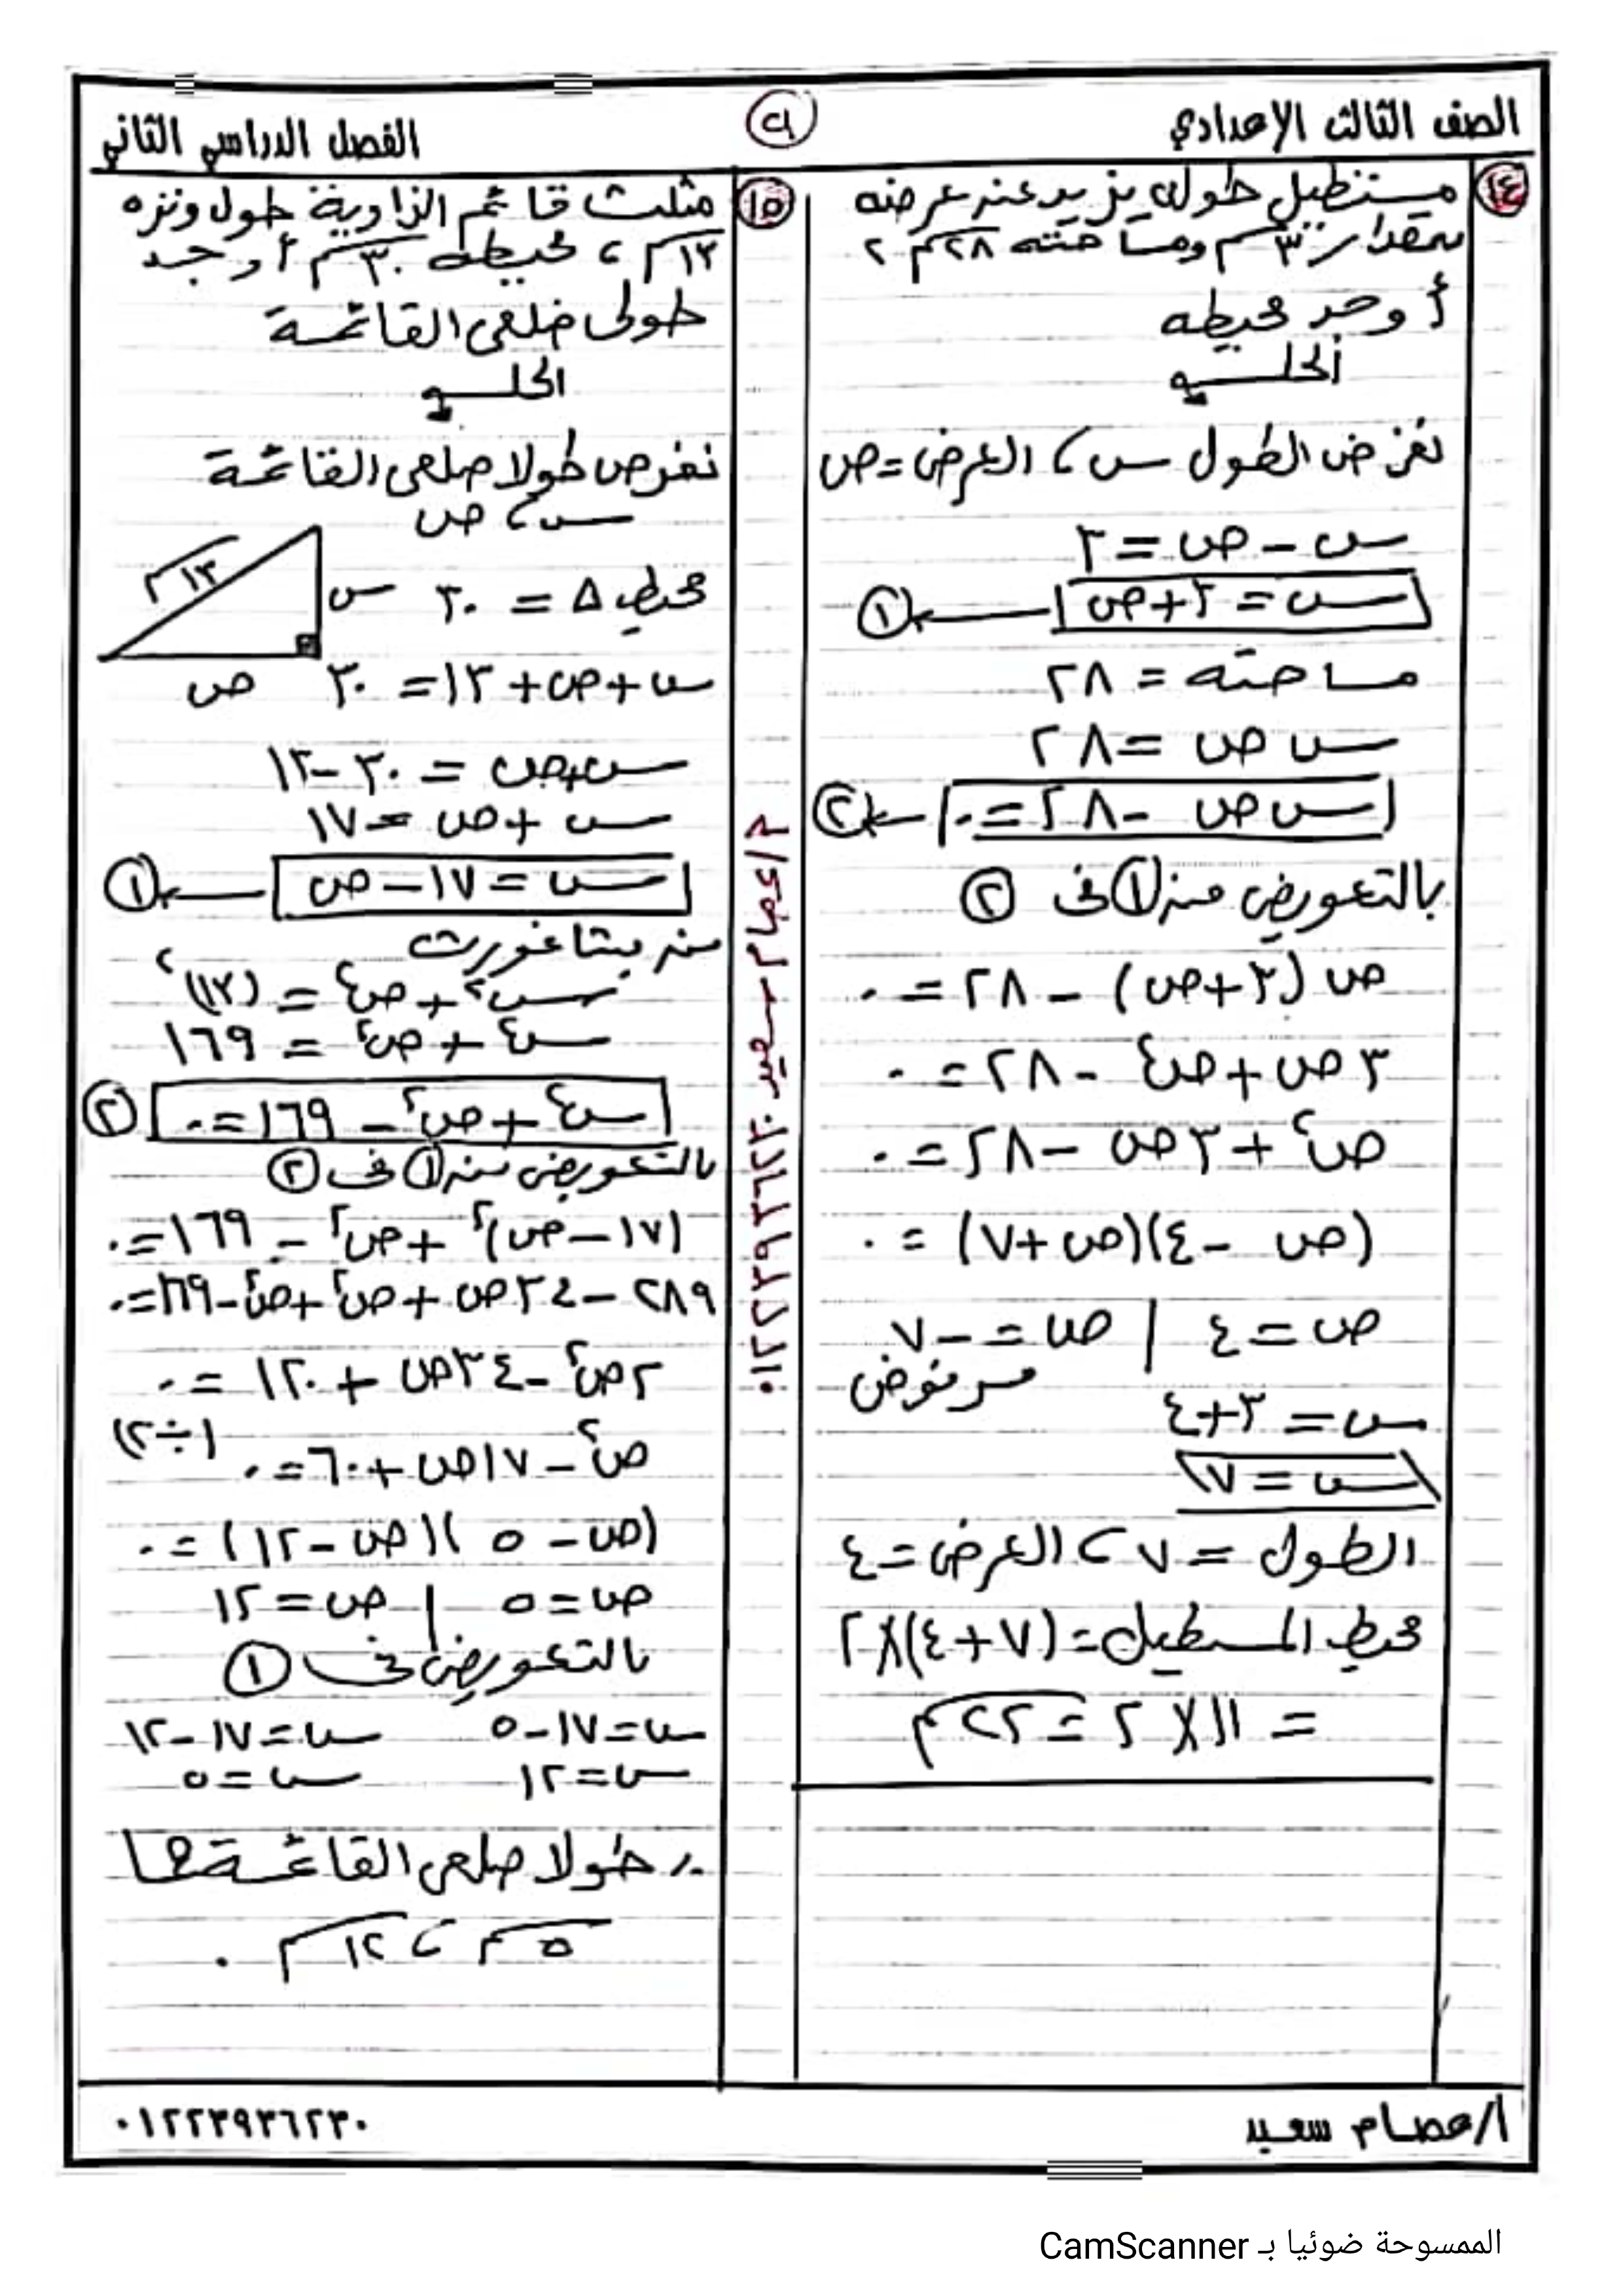 الصف الثالث الإعدادي
٩
الفصل الدراسي الثاني
١٤
مستطيل طوله يزيد عن عرضه
بمقدار ٣سم ومساحته ٢٨سم٢
أوجد محيطه
الحل
نفرض الطول س ، العرض = ص
س - ص = ٣
س = ٣ + ص ← ①
مساحته = ٢٨
س ص = ٢٨
س ص - ٢٨ = ٠ ← ②
بالتعويض من ① فى ②
ص (٣ + ص) - ٢٨ = ٠
٣ص + ص² - ٢٨ = ٠
ص² + ٣ص - ٢٨ = ٠
(ص - ٤)(ص + ٧) = ٠
ص = ٤ | ص = -٧
مرفوض
س = ٣ + ٤
س = ٧
الطول = ٧ ، العرض = ٤
محيط المستطيل = (٧ + ٤) × ٢
= ١١ × ٢ = ٢٢سم
١٥
مثلث قائم الزاوية طول وتره
١٣سم ، محيطه ٣٠سم أوجد
طولى ضلعى القائمة
الحل
نفرض طولا ضلعى القائمة
س ، ص
١٣سم
س
محيط Δ = ٣٠
ص
س + ص + ١٣ = ٣٠
س + ص = ٣٠ - ١٣
س + ص = ١٧
س = ١٧ - ص ← ①
من فيثاغورث
س² + ص² = (١٣)²
س² + ص² = ١٦٩
س² + ص² - ١٦٩ = ٠ ②
بالتعويض من ① فى ②
(١٧ - ص)² + ص² - ١٦٩ = ٠
٢٨٩ - ٣٤ص + ص² + ص² - ١٦٩ = ٠
٢ص² - ٣٤ص + ١٢٠ = ٠
(÷٢)
ص² - ١٧ص + ٦٠ = ٠
(ص - ٥)(ص - ١٢) = ٠
ص = ٥ | ص = ١٢
بالتعويض فى ①
س = ١٧ - ٥ س = ١٧ - ١٢
س = ١٢ س = ٥
∴ طولا ضلعى القائمة هما
٥سم ، ١٢سم .
أ/عصام سعيد ٠١٢٢٣٩٣٦٢٣٠
أ/عصام سعيد
٠١٢٢٣٩٣٦٢٣٠
الممسوحة ضوئيا بـ CamScanner